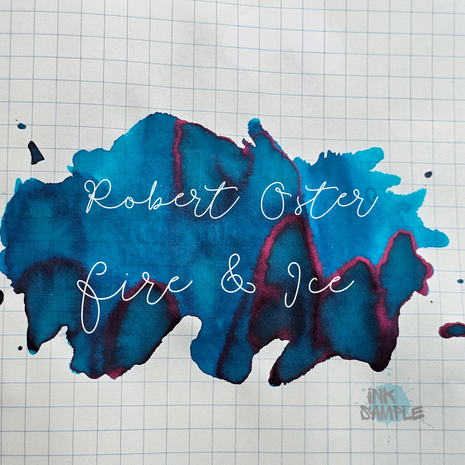 Robert Oster
Fire & Ice
INK
SAMPLE